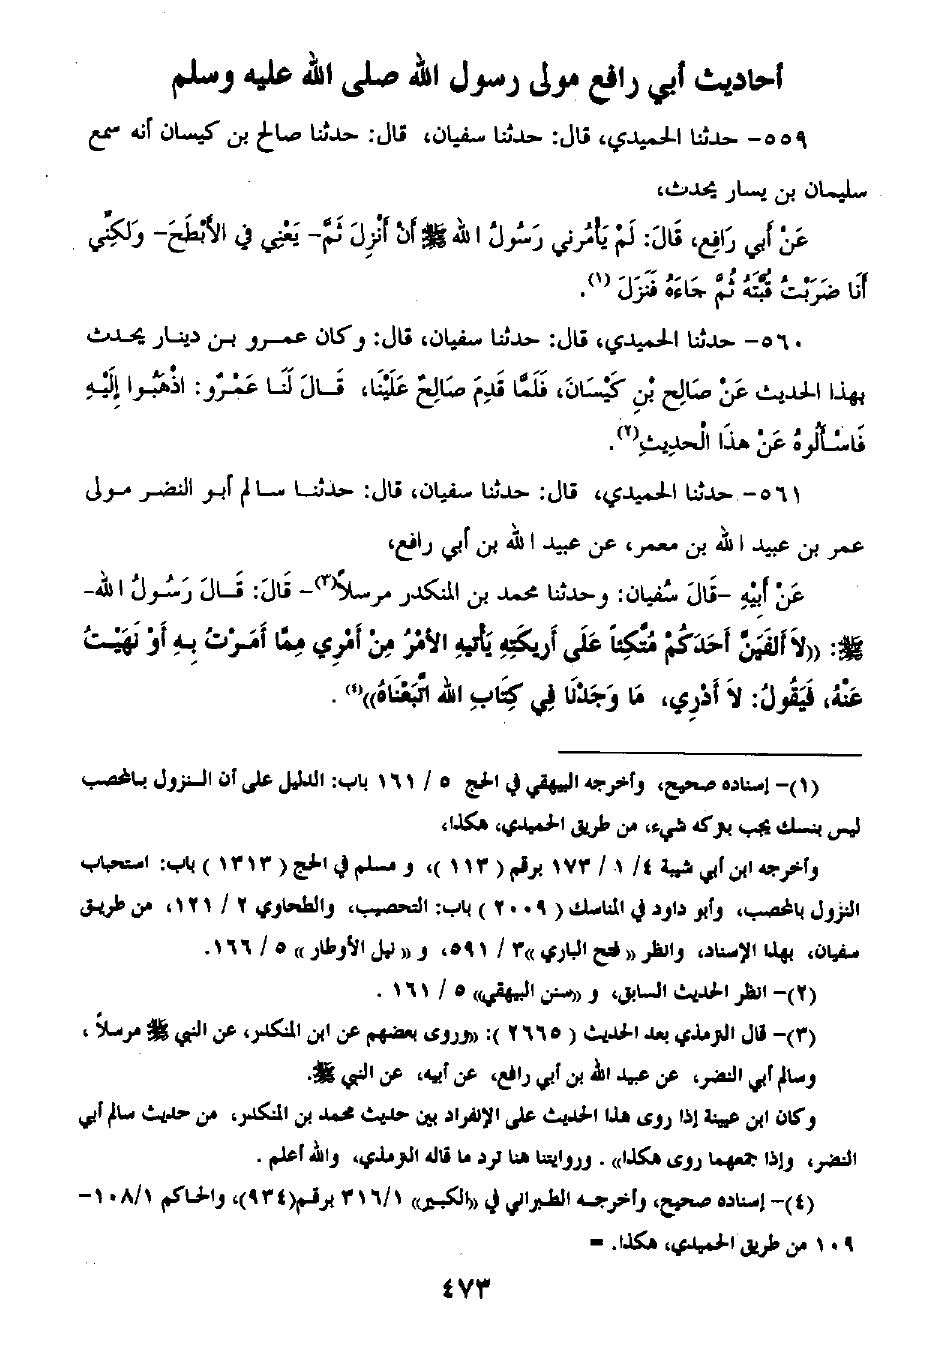 أحاديث أبي رافع مولى رسول الله صلى الله عليه وسلم
٥٥٩- حدثنا الحميدي، قال: حدثنا سفيان، قال: حدثنا صالح بن كيسان أنه سمع
سليمان بن يسار يحدث،
عَنْ أَبِي رَافِعٍ، قَالَ: لَمْ يَأْمُرني رَسُولُ الله ﷺ أَنْ أَنْزِلَ ثَمَّ- يَعْنِي فِي الأَبْطَحِ- وَلَكِنِّي
أَنَا ضَرَبْتُ قُبَّتَهُ ثُمَّ جَاءَهُ فَنَزَلَ (١).
٥٦٠- حدثنا الحميدي، قال: حدثنا سفيان، قال: وكان عمرو بن دينار يحدث
بهذا الحديث عَنْ صَالِحِ بْنِ كَيْسَانَ، فَلَمَّا قَدِمَ صَالِحٌ عَلَيْنَا، قَالَ لَنَا عَمْرٌو: اذْهَبُوا إِلَيْهِ
فَاسْأَلُوهُ عَنْ هذَا الْحَدِيثِ(٢).
٥٦١- حدثنا الحميدي، قال: حدثنا سفيان، قال: حدثنا سالم أبو النضر مولى
عمر بن عبيد الله بن معمر، عن عبيد الله بن أبي رافع،
عَنْ أَبِيْهِ -قَالَ سُفيان: وحدثنا محمد بن المنكدر مرسلاً(٣)- قَالَ: قَالَ رَسُولُ الله-
ﷺ: ((لاَ أَلْفَيَنَّ أَحَدَكُمْ مُتَّكِئاً عَلَى أَرِيكَتِهِ يَأْتِيهِ الأَمْرُ مِنْ أَمْرِي مِمَّا أَمَرْتُ بِهِ أَوْ نَهَيْتُ
عَنْهُ، فَيَقُولُ: لاَ أَدْرِي، مَا وَجَدْنَا فِي كِتَابِ الله اتَّبَعْنَاهُ))(٤).
(١)- إسناده صحيح، وأخرجه البيهقي في الحج ٥ / ١٦١ باب: الدليل على أن النزول بالمحصب
ليس بنسك يجب بتركه شيء، من طريق الحميدي، هكذا،
وأخرجه ابن أبي شيبة ٤/ ١ / ١٧٣ برقم ( ١١٣ )، و مسلم في الحج ( ١٣١٣ ) باب: استحباب
النزول بالمحصب، وأبو داود في المناسك ( ٢٠٠٩ ) باب: التحصيب، والطحاوي ٢ / ١٢١، من طريق
سفيان، بهذا الإسناد، وانظر (( فتح الباري ))٣ / ٥٩١، و (( نيل الأوطار )) ٥ / ١٦٦.
(٢)- انظر الحديث السابق، و ((سنن البيهقي)) ٥ / ١٦١ .
(٣)- قال الترمذي بعد الحديث ( ٢٦٦٥ ): ((وروى بعضهم عن ابن المنكدر، عن النبي ﷺ مرسلاً ،
وسالم أبي النضر، عن عبيد الله بن أبي رافع، عن أبيه، عن النبي ﷺ.
وكان ابن عيينة إذا روى هذا الحديث على الإنفراد بين حديث محمد بن المنكدر، من حديث سالم أبي
النضر، وإذا جمعهما روى هكذا)) . وروايتنا هنا ترد ما قاله الترمذي، والله أعلم .
(٤)- إسناده صحيح، وأخرجه الطبراني في ((الكبير)) ٣١٦/١ برقم(٩٣٤)، والحاكم ١٠٨/١-
١٠٩ من طريق الحميدي، هكذا. =
٤٧٣